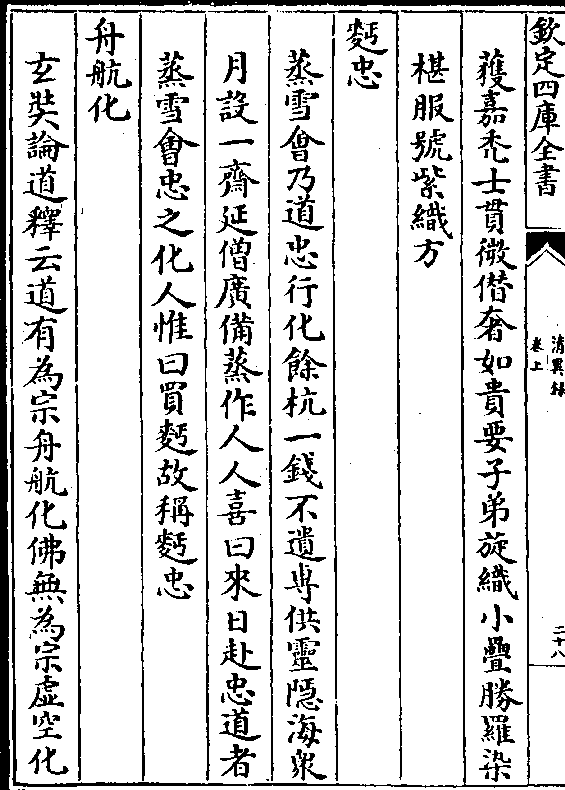 欽定四庫全書
清異録
卷上
二十八
蒦嘉禿士貫微僣奢如貴要子弟旋織小疊勝羅染
椹服號紫織方
麪忠
蒸雪會乃道忠行化餘杭一錢不遺専供靈隠海衆
月設一齋延僧廣備蒸作人人喜曰來日赴忠道者
蒸雪會忠之化人惟曰買麪故稱麪忠
舟航化
玄奘論道釋云道有為宗舟航化佛無為宗虛空化